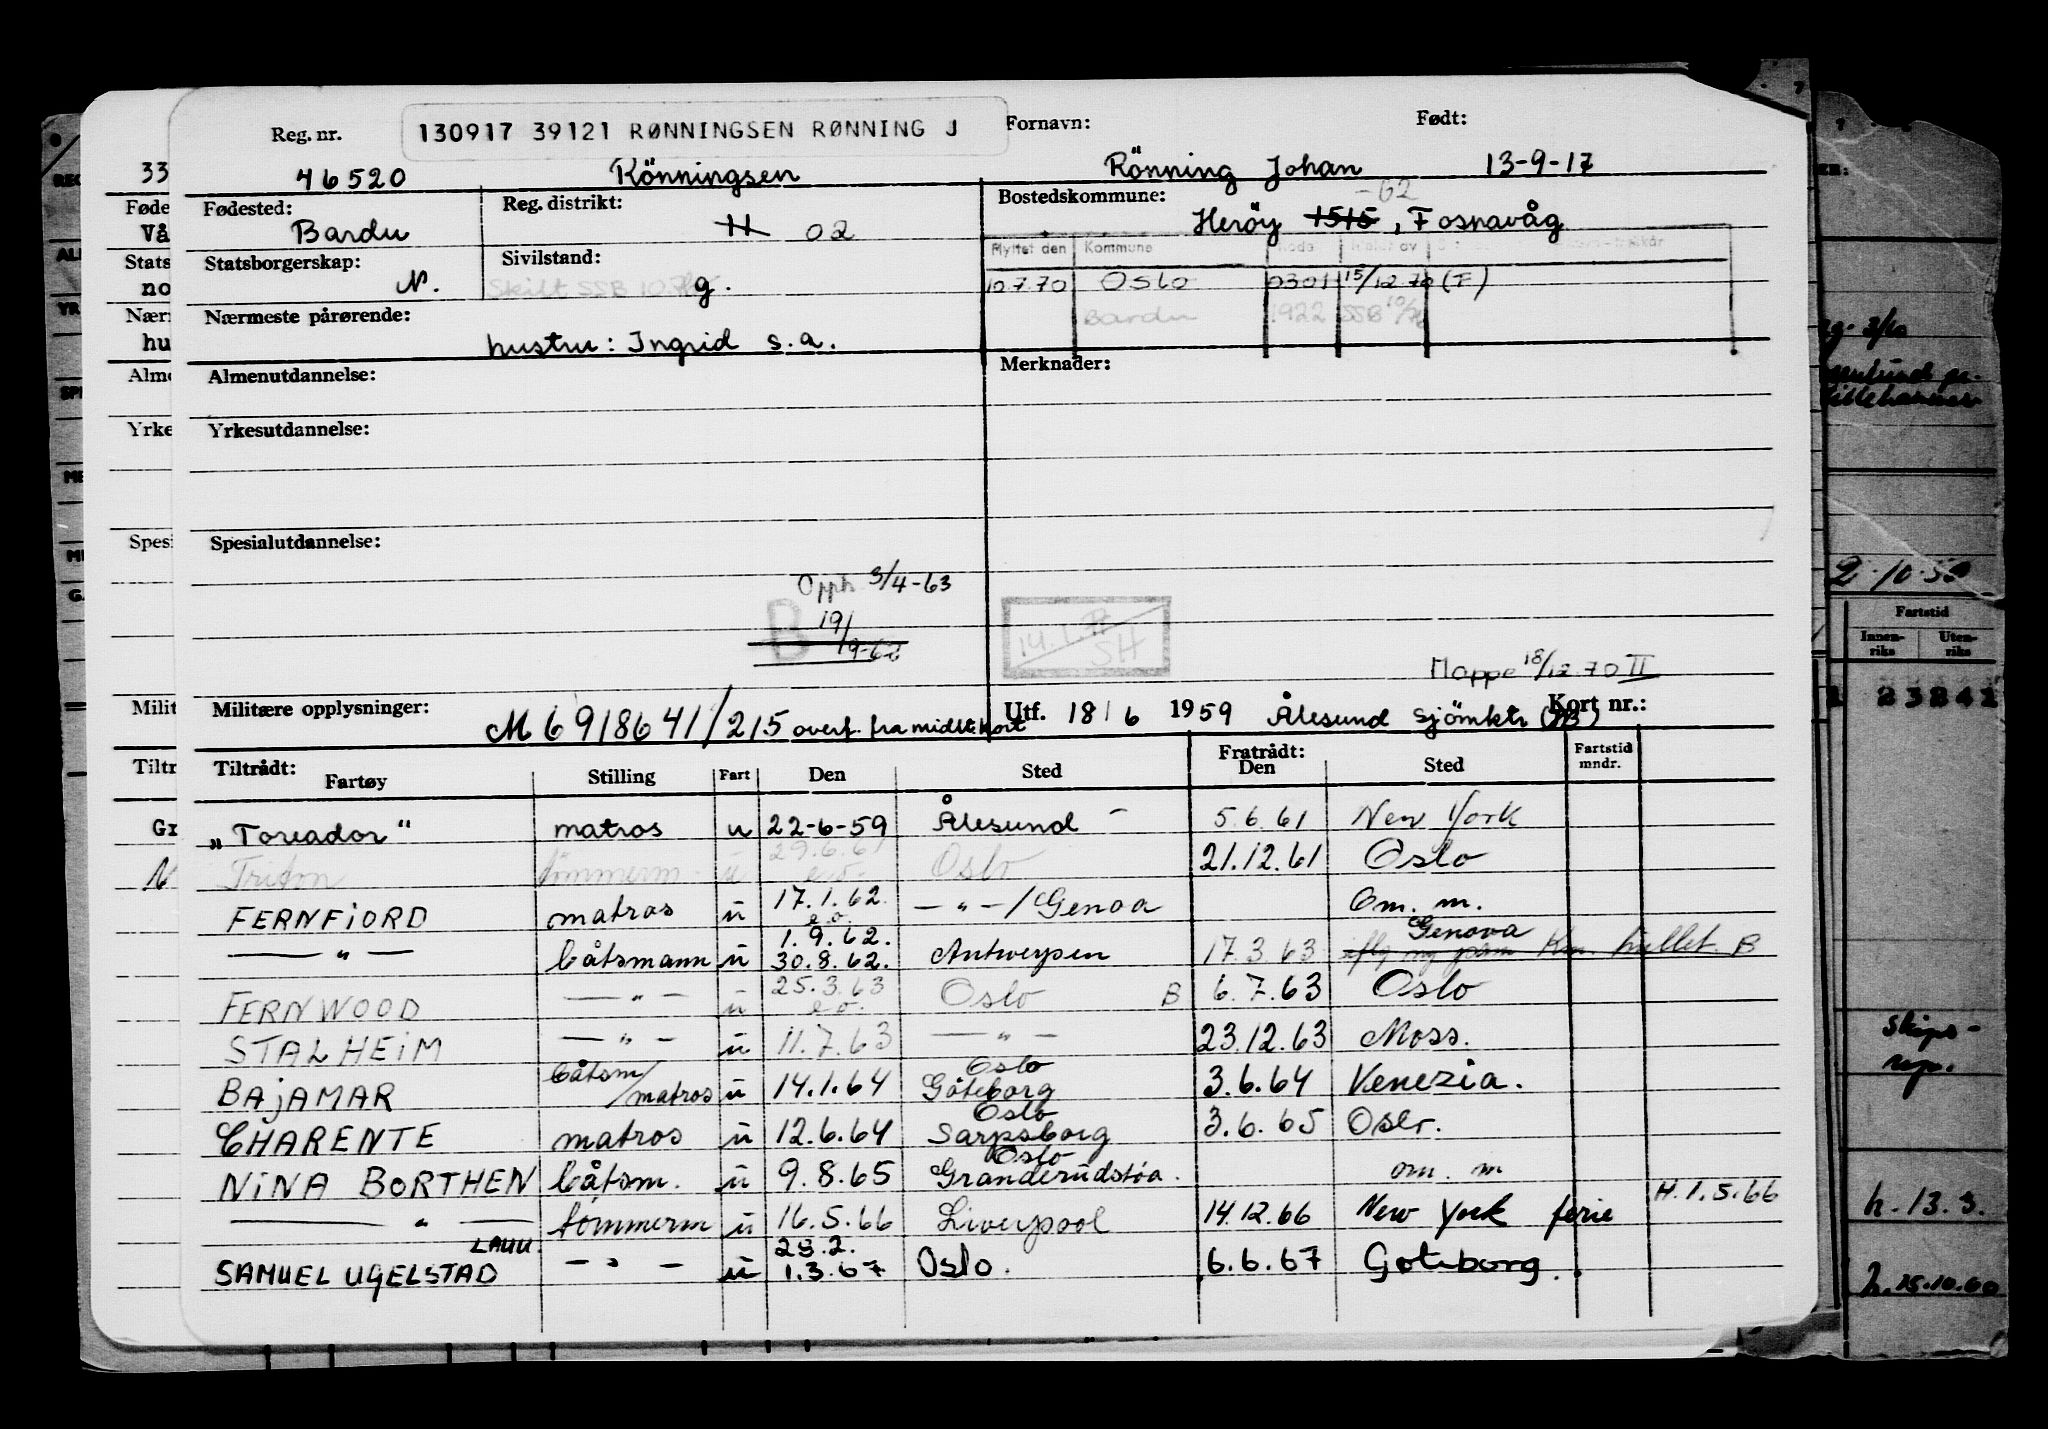 Reg. nr. 130917 39121 RØNNINGSEN RØNNING J Fornavn: Født:
46520 Rönningsen Rönning Johan 13-9-17
Fødested: Reg. distrikt: Bostedskommune: -62
Bardu 11 02 Heröy 1515, Fosnavåg
Statsborgerskap: Sivilstand: Flyttet den Kommune
N. Skilt SSB g. 10.7.70 Oslo 0301 15/12.70 (F)
Bardu 1922 SSB
Nærmeste pårørende:
hustru: Ingrid s.a.
Almenutdannelse: Merknader:
Yrkesutdannelse:
Spesialutdannelse:
Opph 3/4-63
B 19/9-62
14.1. SH
Mappe 18/12.70 II
Militære opplysninger: M 6918641/215 overf. fra midl. kort Utf. 18/6 1959 Ålesund Sjömktr Kort nr.:
Tiltrådt: Fratrådt: Fartstid mndr.
Fartøy Stilling Fart Den Sted Den Sted
„Toreador" matros u 22-6-59 Ålesund - 5.6.61 New York
Triton tömmerm. u 29.6.61 e.o. Oslo 21.12.61 Oslo
FERNFIORD matros u 17.1.62. e.o. — " — / Genoa Om. m.
— " — båtsmann u 1.9.62. 30.8.62. Antwerpen 17.3.63 Genova hullet B
FERNWOOD — " — u 25.3.63 e.o. Oslo B 6.7.63 Oslo
STALHEIM — " — u 11.7.63 — " — 23.12.63 Moss.
BAJAMAR båtsm/matros u 14.1.64 Oslo Göteborg 3.6.64 Venezia.
CHARENTE matros u 12.6.64 Oslo Sarpsborg 3.6.65 Oslo.
NINA BORTHEN båtsm. u 9.8.65 Oslo Granderudstøa. om. m
— " — tömmerm u 16.5.66 Liverpool 14.12.66 New York ferie H. 1.5.66
SAMUEL UGELSTAD LAUU. — " — u 28.2. 1.3.67 Oslo. 6.6.67 Göteborg.
33
Føde
Vå
Stats
no
Nær
hu
Alme
Yrke
Spesi
Milit
Tiltr
Gr
2-10-59
Fartstid
Innenriks Utenriks
1 23841
Skips-
h. 13.3.
h. 15.10.60